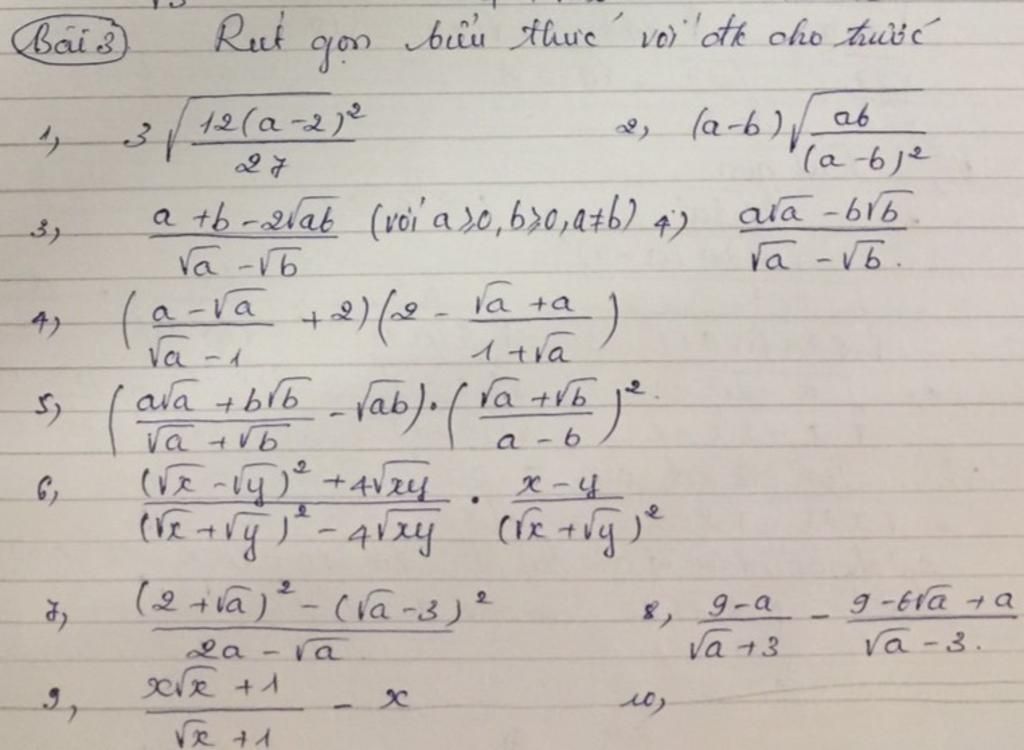 Bài 3 Rút gọn biểu thức với đk cho trước
1, 3√(12(a-2)²/27) 2, (a-b)√(ab/(a-b)²)
3, (a+b-2√ab)/(√a-√b) (với a≥0, b≥0, a≠b) 4) (a√a-b√b)/(√a-√b).
4, ((a-√a)/(√a-1) + 2)(2 - (√a+a)/(1+√a))
5, ((a√a+b√b)/(√a+√b) - √ab)·((√a+√b)/(a-b))².
6, ((√x-√y)²+4√xy)/((√x+√y)²-4√xy) · (x-y)/(√x+√y)²
7, ((2+√a)²-(√a-3)²)/(2a-√a) 8, (9-a)/(√a+3) - (9-6√a+a)/(√a-3).
9, (x√x+1)/(√x+1) - x 10,